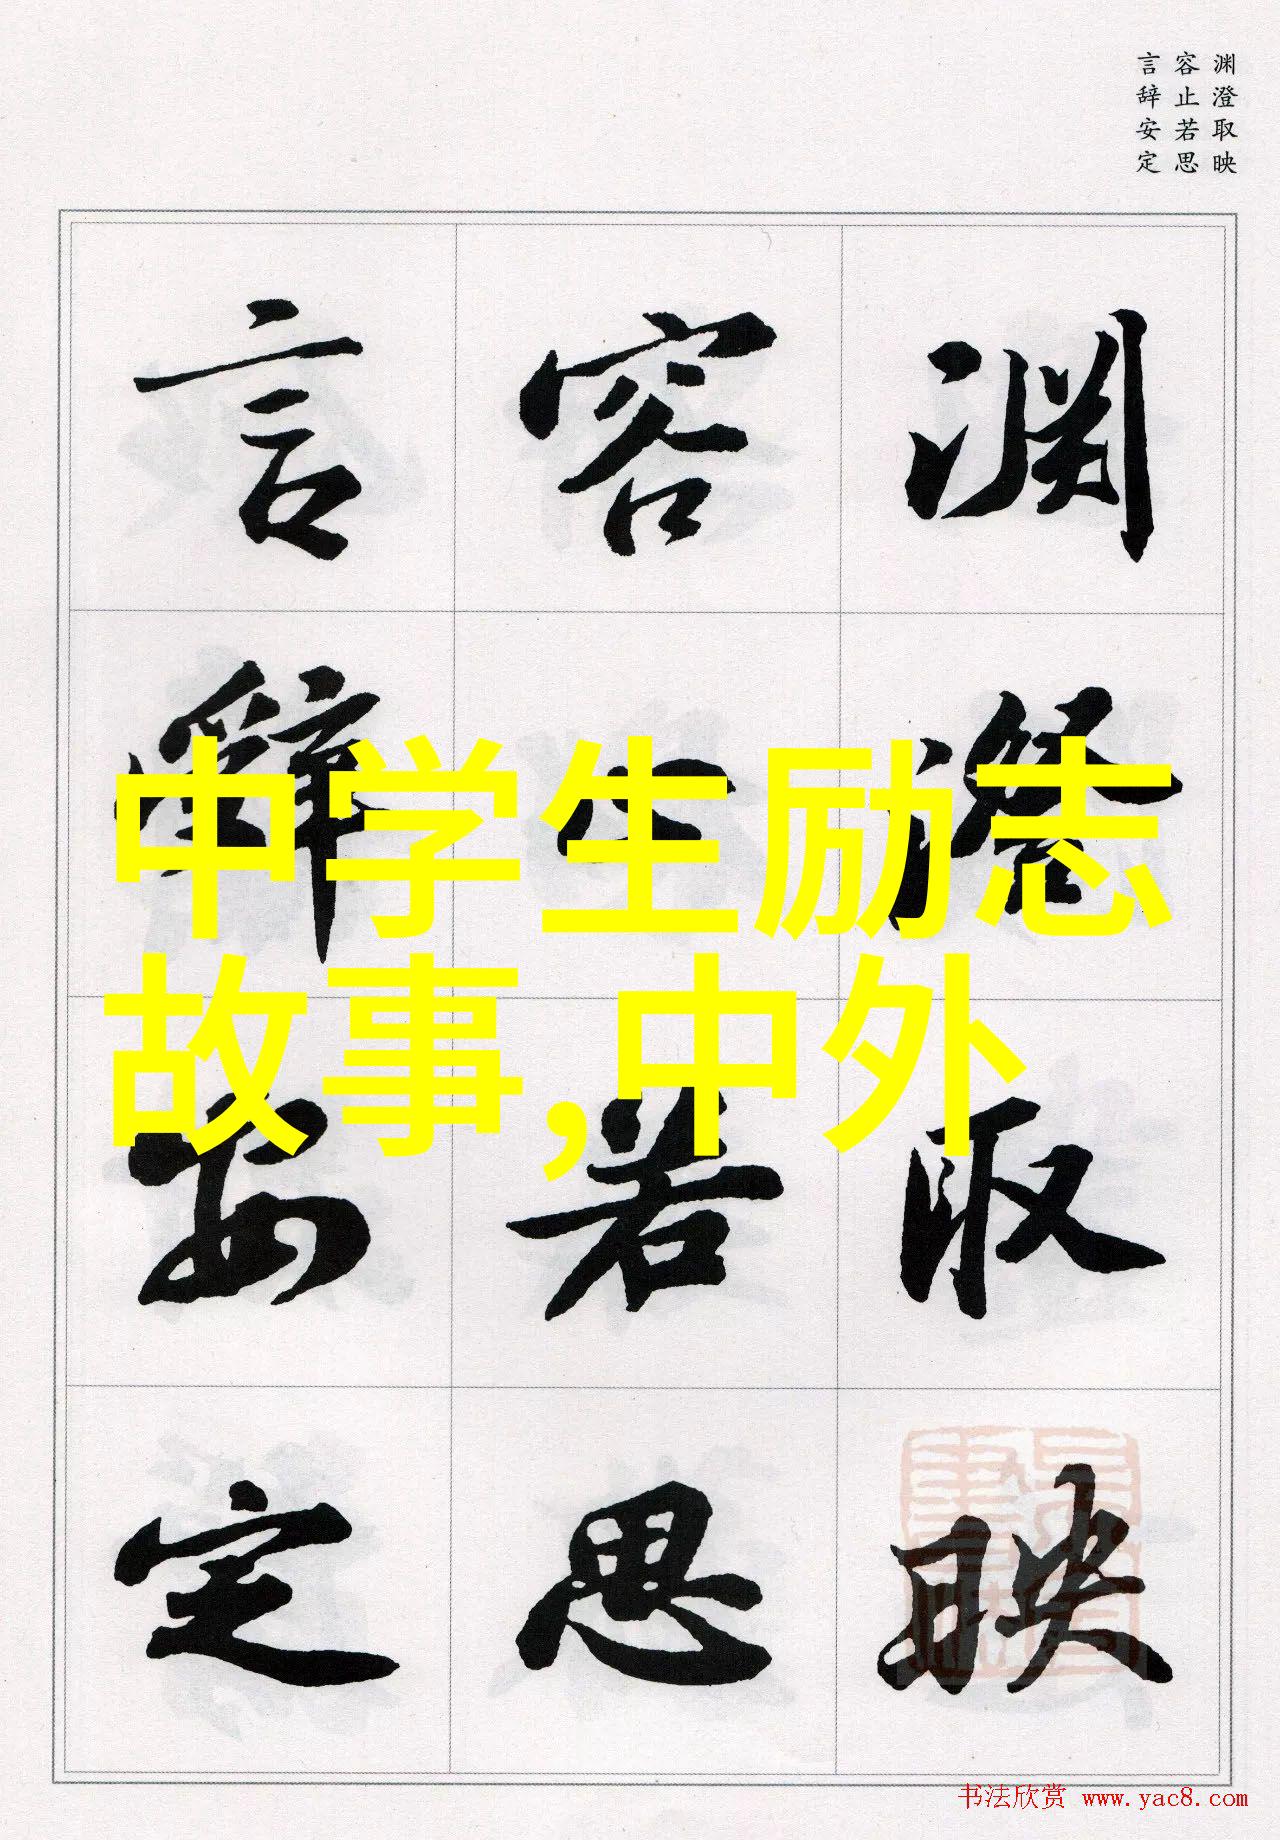 渊澄取映
容止若思
言辞安定
渊澄取映
容止若思
言辞安定
中学生励志
故事,中外
书法欣赏 www.yac8.com